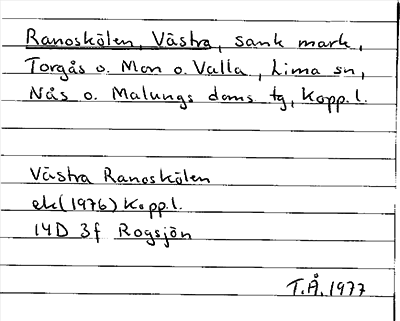 Ranoskölen, Västra, sank mark,
Torgås o. Mon o. Valla, Lima sn,
Nås o. Malungs doms tg, Kopp.l.
Västra Ranoskölen
ek (1976) Kopp.l.
14D 3f Rogsjön
T.Å. 1977